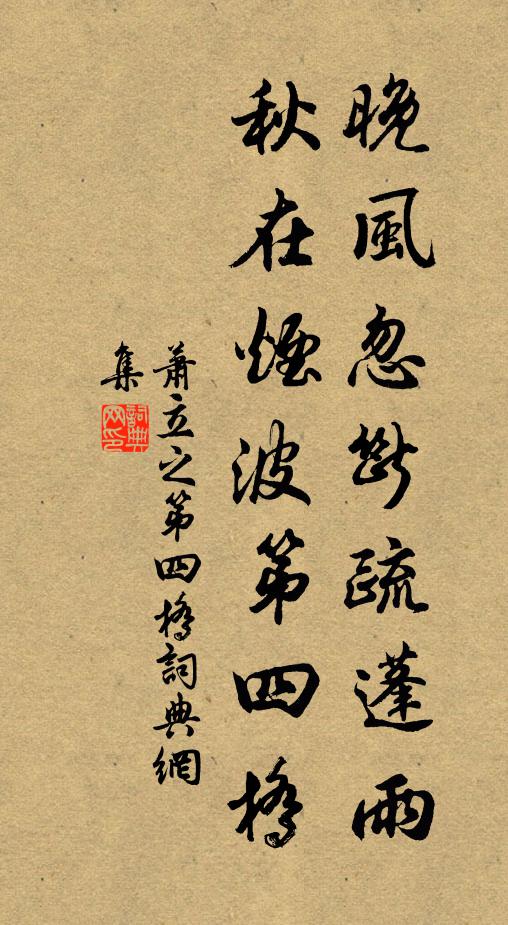 晚風忽斷疏蓬雨
秋在煙波第四橋
蕭立之第四橋詞典網
集
詞典
网印